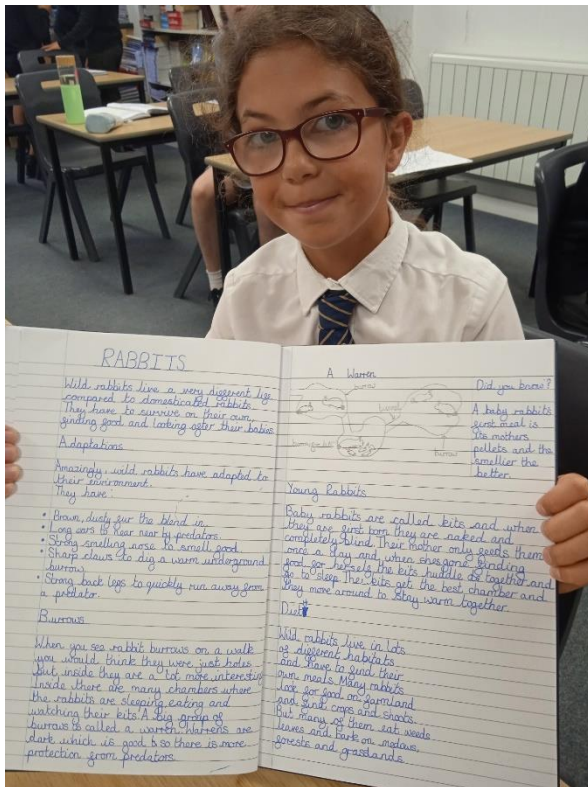 RABBITS
Wild rabbits live a very different life
compared to domesticated rabbits.
They have to survive on their own,
finding food and looking after their babies.
Adaptations
Amazingly, wild rabbits have adapted to
their environment.
They have:
• Brown, dusty fur the blend in.
• Long ears to hear near by predators.
• Strong smelling nose to smell food
• Sharp claws to dig a warm underground
burrow
• Strong back legs to quickly run away from
a predator.
Burrows
When you see rabbit burrows on a walk
you would think they were just holes
but inside they are a lot more interestin
Inside there are many chambers where
the rabbits are sleeping, eating and
watching their kits. A big group of
burrows is called a warren. Warrens are
dark which is good so there is more
protection from predators.
A Warren
burrow
burrow
Did you know?
A baby rabbits
first meal is
its mothers
pellets and the
smellier the
better.
Young Rabbits
Baby rabbits are called kits and when
they are first born they are naked and
completely blind. Their mother only feeds them
once a day and, when shes gone finding
food for herself the kits huddle together and
go to sleep. The kits get the best chamber and
they move around to stay warm together.
Diet
Wild rabbits live in lots
of different habitats
and have to find their
own meals. Many rabbits
look for food on farmland
and find crops and shoots.
But many of them eat weeds
leaves and bark on medows,
forests and grasslands.